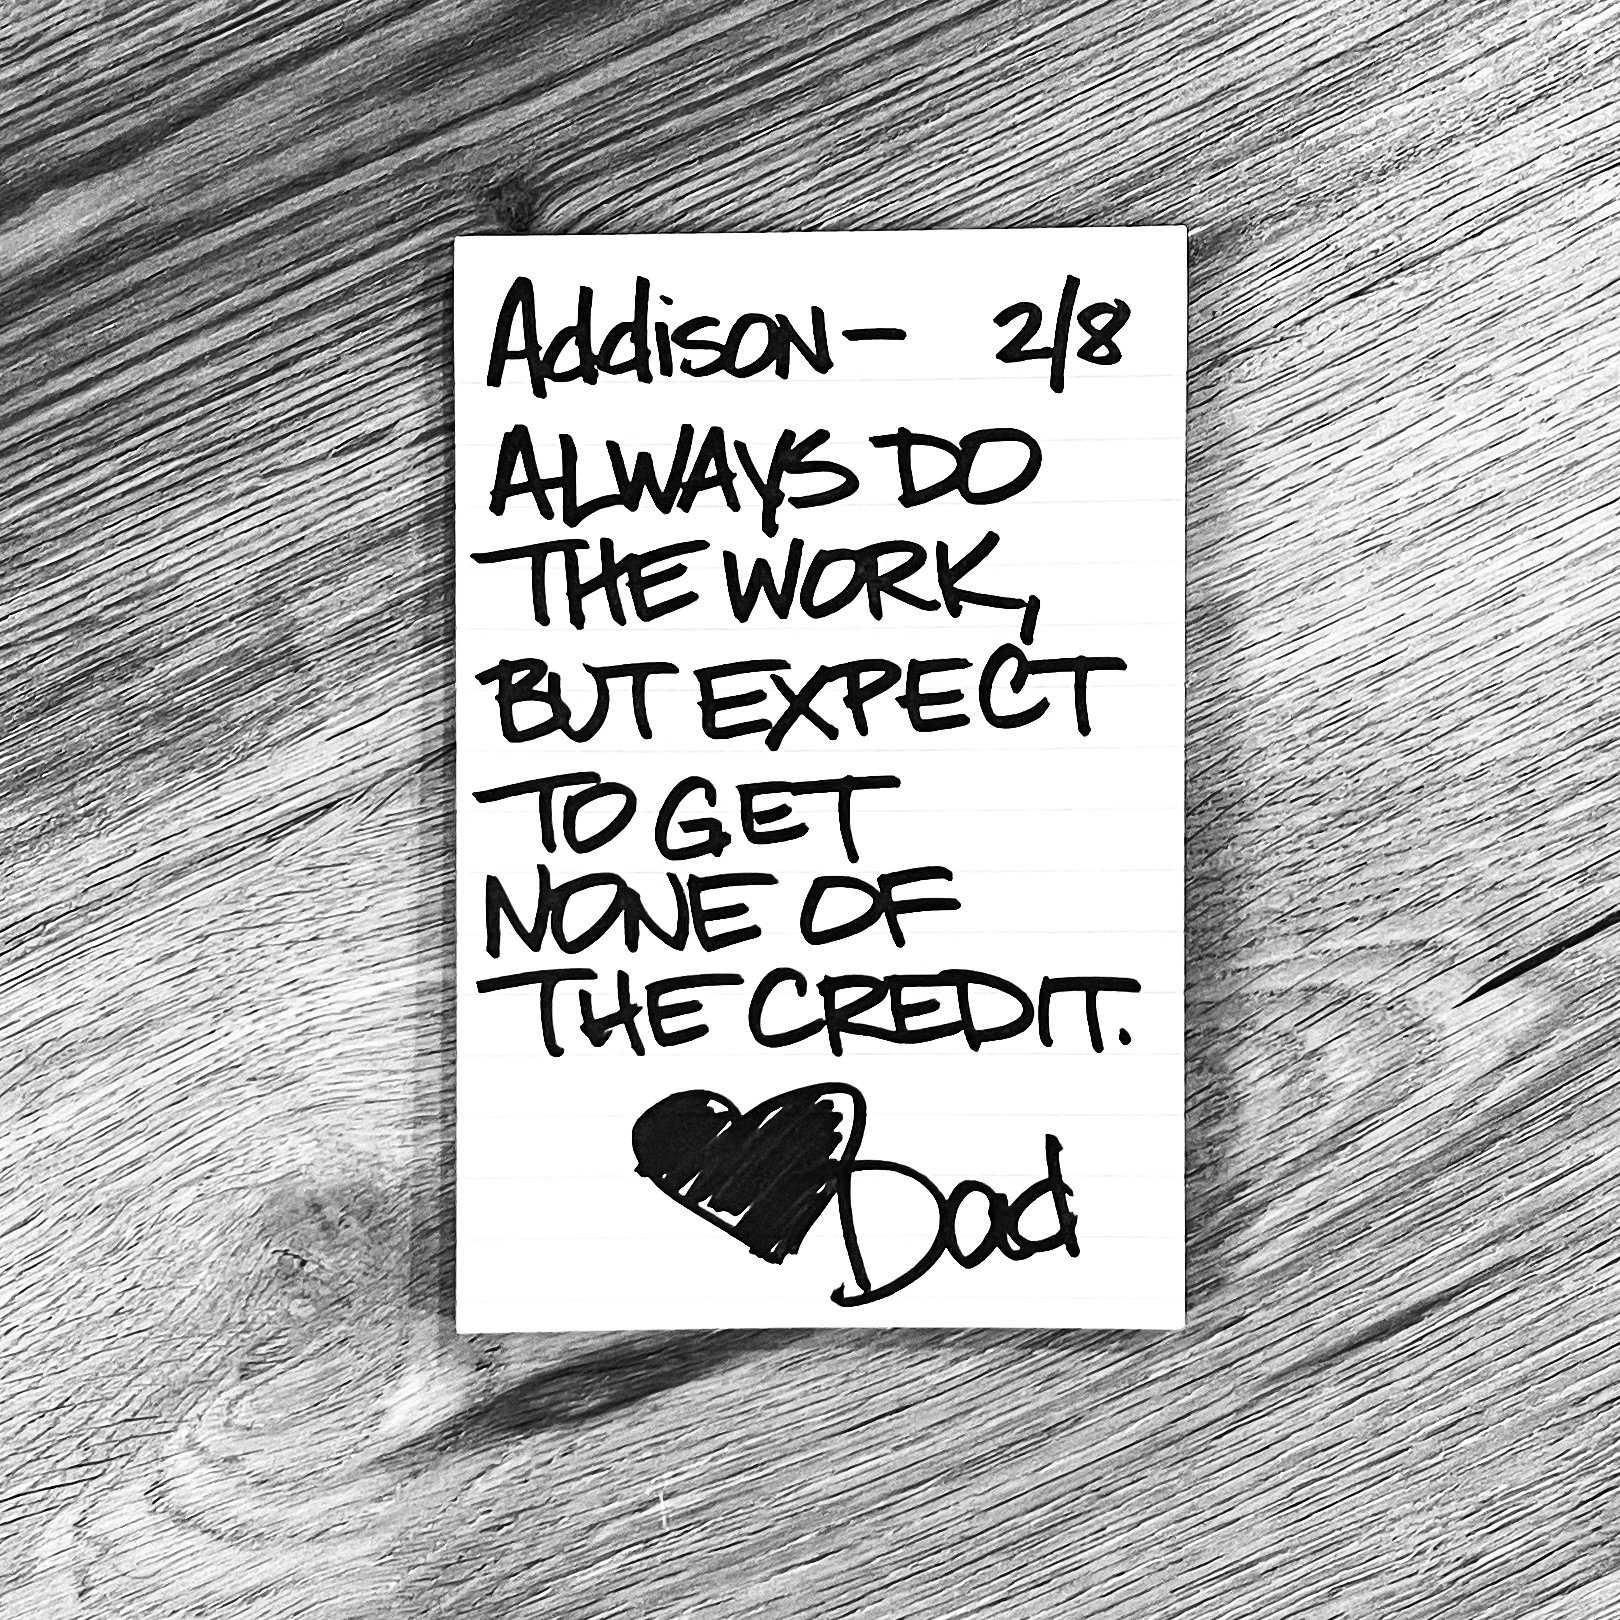 Addison— 2/8
ALWAYS DO
THE WORK,
BUT EXPECT
TO GET
NONE OF
THE CREDIT.
Dad